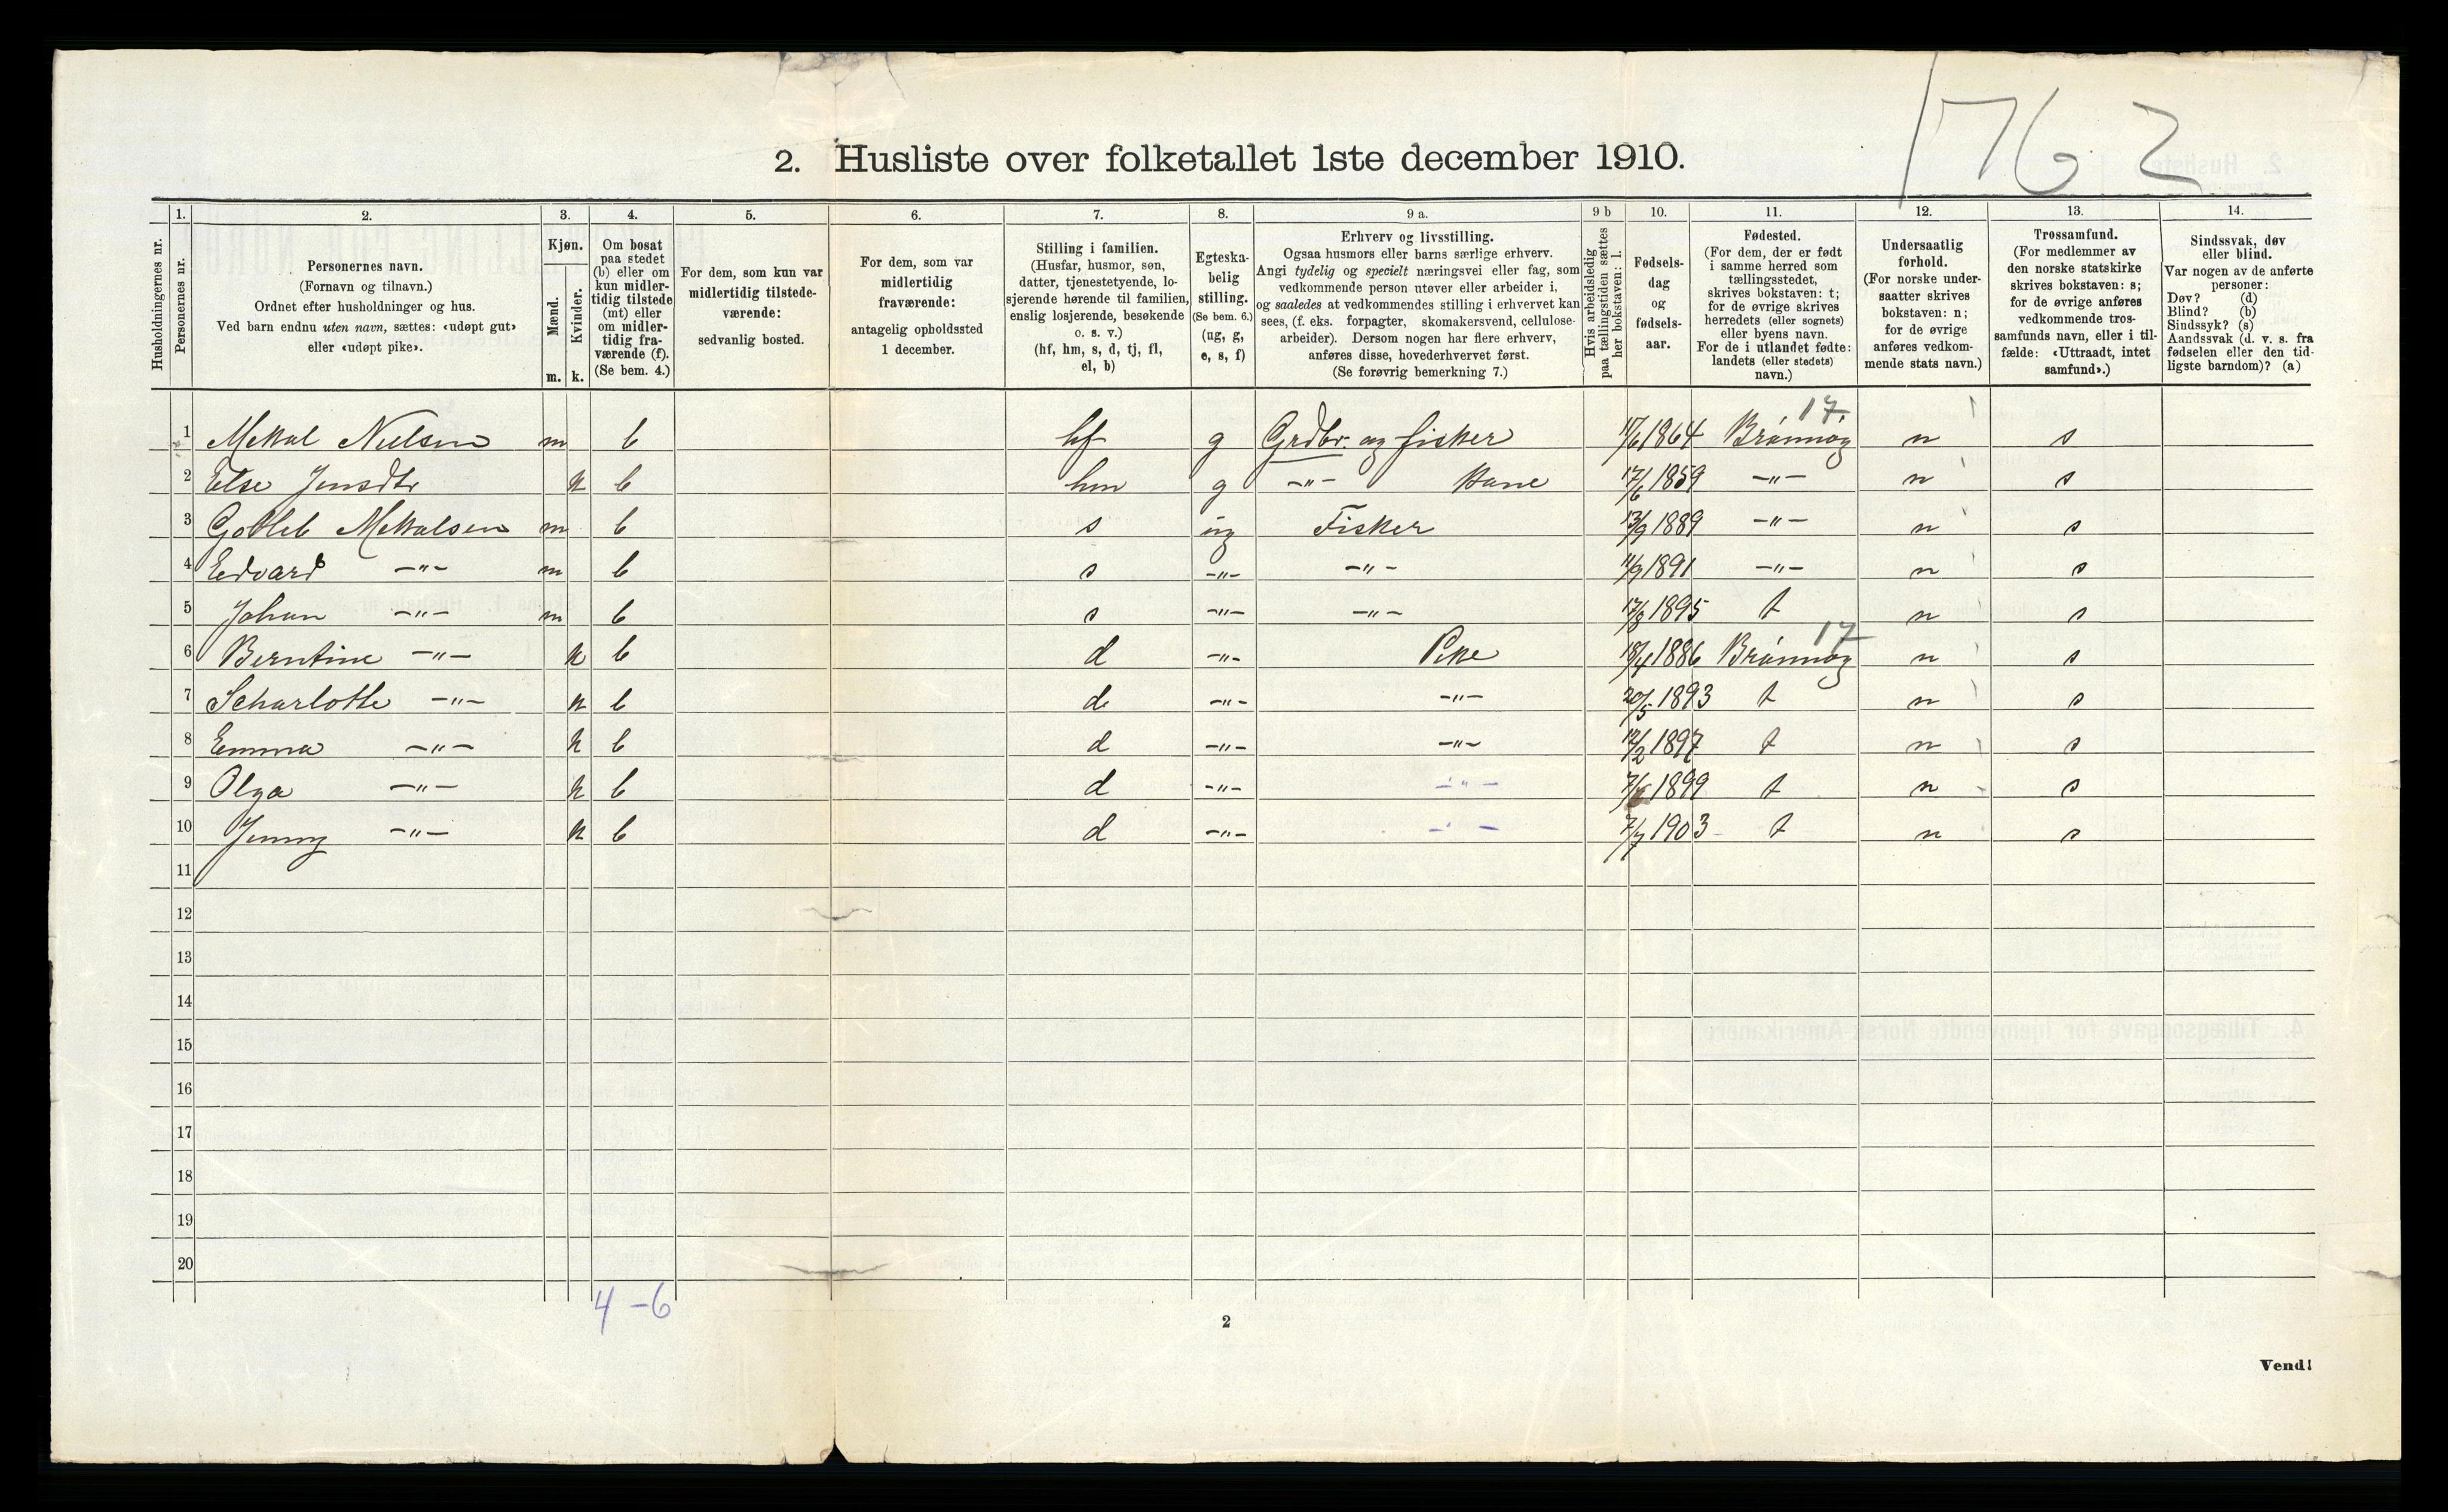 1762
2. Husliste over folketallet 1ste december 1910.
Husholdningernes nr.
1. Personernes nr.
2. Personernes navn.
(Fornavn og tilnavn.)
Ordnet efter husholdninger og hus.
Ved barn endnu uten navn, sættes: «udøpt gut»
eller «udøpt pike».
3. Kjøn.
Mænd. m.
Kvinder. k.
4. Om bosat
paa stedet
(b) eller om
kun midler-
tidig tilstede
(mt) eller
om midler-
tidig fra-
værende (f).
(Se bem. 4.)
5. For dem, som kun var
midlertidig tilstede-
værende:
sedvanlig bosted.
6. For dem, som var
midlertidig
fraværende:
antagelig opholdssted
1 december.
7. Stilling i familien.
(Husfar, husmor, søn,
datter, tjenestetyende, lo-
sjerende hørende til familien,
enslig losjerende, besøkende
o. s. v.)
(hf, hm, s, d, tj, fl,
el, b)
8. Egteska-
belig
stilling.
(Se bem. 6.)
(ug, g,
e, s, f)
9 a. Erhverv og livsstilling.
Ogsaa husmors eller barns særlige erhverv.
Angi tydelig og specielt næringsvei eller fag, som
vedkommende person utøver eller arbeider i,
og saaledes at vedkommendes stilling i erhvervet kan
sees, (f. eks. forpagter, skomakersvend, cellulose-
arbeider). Dersom nogen har flere erhverv,
anføres disse, hovederhvervet først.
(Se forøvrig bemerkning 7.)
9 b Hvis arbeidsledig
paa tællingstiden sættes
her bokstaven: l.
10. Fødsels-
dag
og
fødsels-
aar.
11. Fødested.
(For dem, der er født
i samme herred som
tællingsstedet,
skrives bokstaven: t;
for de øvrige skrives
herredets (eller sognets)
eller byens navn.
For de i utlandet fødte:
landets (eller stedets)
navn.)
12. Undersaatlig
forhold.
(For norske under-
saatter skrives
bokstaven: n;
for de øvrige
anføres vedkom-
mende stats navn.)
13. Trossamfund.
(For medlemmer av
den norske statskirke
skrives bokstaven: s;
for de øvrige anføres
vedkommende tros-
samfunds navn, eller i til-
fælde: «Uttraadt, intet
samfund».)
14. Sindssvak, døv
eller blind.
Var nogen av de anførte
personer:
Døv? (d)
Blind? (b)
Sindssyk? (s)
Aandssvak (d. v. s. fra
fødselen eller den tid-
ligste barndom)? (a)
17
1 Mekal Nielsen m b hf g Grdbr. og fisker 17/6 1864 Brønnøy n s
2 Else Jensdtr k b hm g -"- Kone 17/6 1859 -"- n s
3 Gotleb Mekalsen m b s ug Fisker 13/9 1889 -"- n s
4 Edvard -"- m b s -"- -"- 11/9 1891 -"- n s
5 Johan -"- m b s -"- -"- 17/8 1895 t n s
17
6 Berntine -"- k b d -"- Pike 18/4 1886 Brønnøy n s
7 Scharlotte -"- k b d -"- -"- 20/5 1893 t n s
8 Emma -"- k b d -"- -"- 12/2 1897 t n s
9 Olga -"- k b d -"- -"- 7/6 1899 t n s
10 Jenny -"- k b d -"- -"- 7/7 1903 t n s
11
12
13
14
15
16
17
18
19
20
4 - 6
2
Vend!